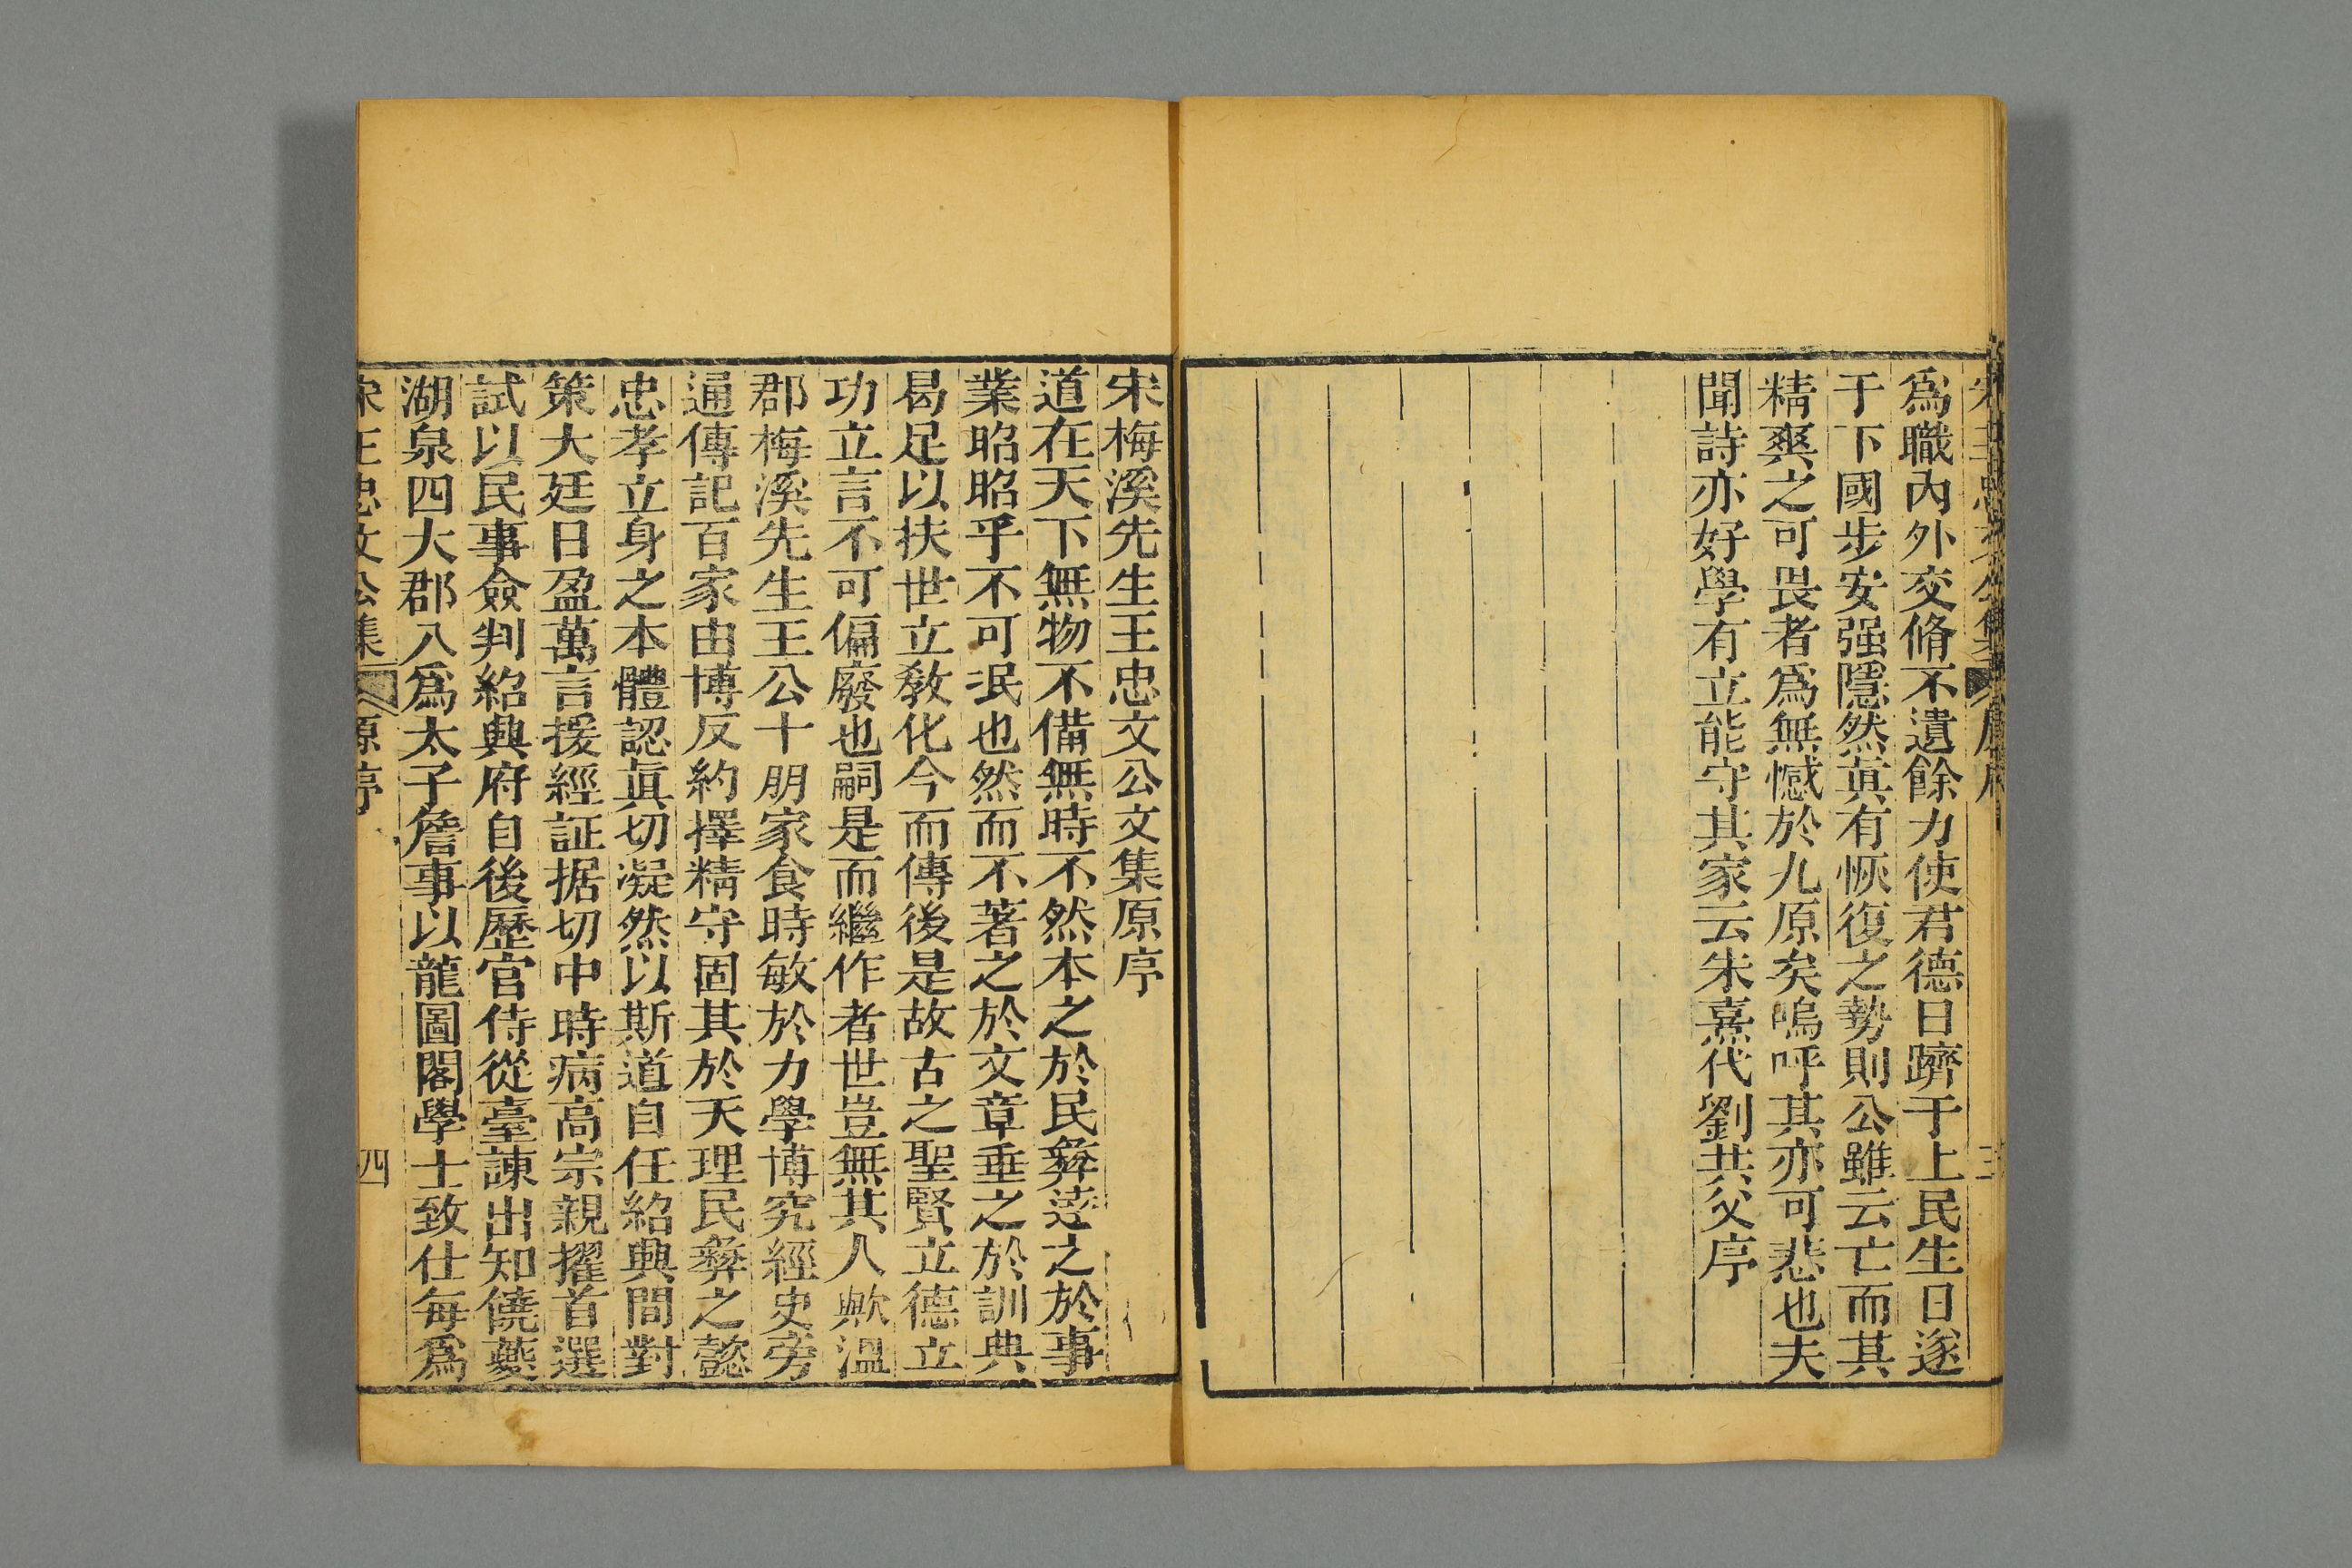 爲職內外交脩不遺餘力使君德日躋于上民生日遂
于下國步安强隱然眞有恢復之勢則公雖云亡而其
精爽之可畏者爲無憾於九原矣嗚呼其亦可悲也夫
聞詩亦好學有立能守其家云朱熹代劉共父序
宋梅溪先生王忠文公文集原序
道在天下無物不備無時不然本之於民彝逹之於事
業昭昭乎不可泯也然而不著之於文章垂之於訓典
曷足以扶世立敎化今而傳後是故古之聖賢立德立
功立言不可偏廢也嗣是而繼作者世豈無其人歟溫
郡梅溪先生王公十朋家食時敏於力學博究經史旁
通傳記百家由博反約擇精守固其於天理民彝之懿
忠孝立身之本體認眞切凝然以斯道自任紹興間對
策大廷日盈萬言援經証据切中時病高宗親擢首選
試以民事僉判紹興府自後歷官侍從臺諫出知饒夔
湖泉四大郡入爲太子詹事以龍圖閣學士致仕每爲
宋王忠文公集 原序 四